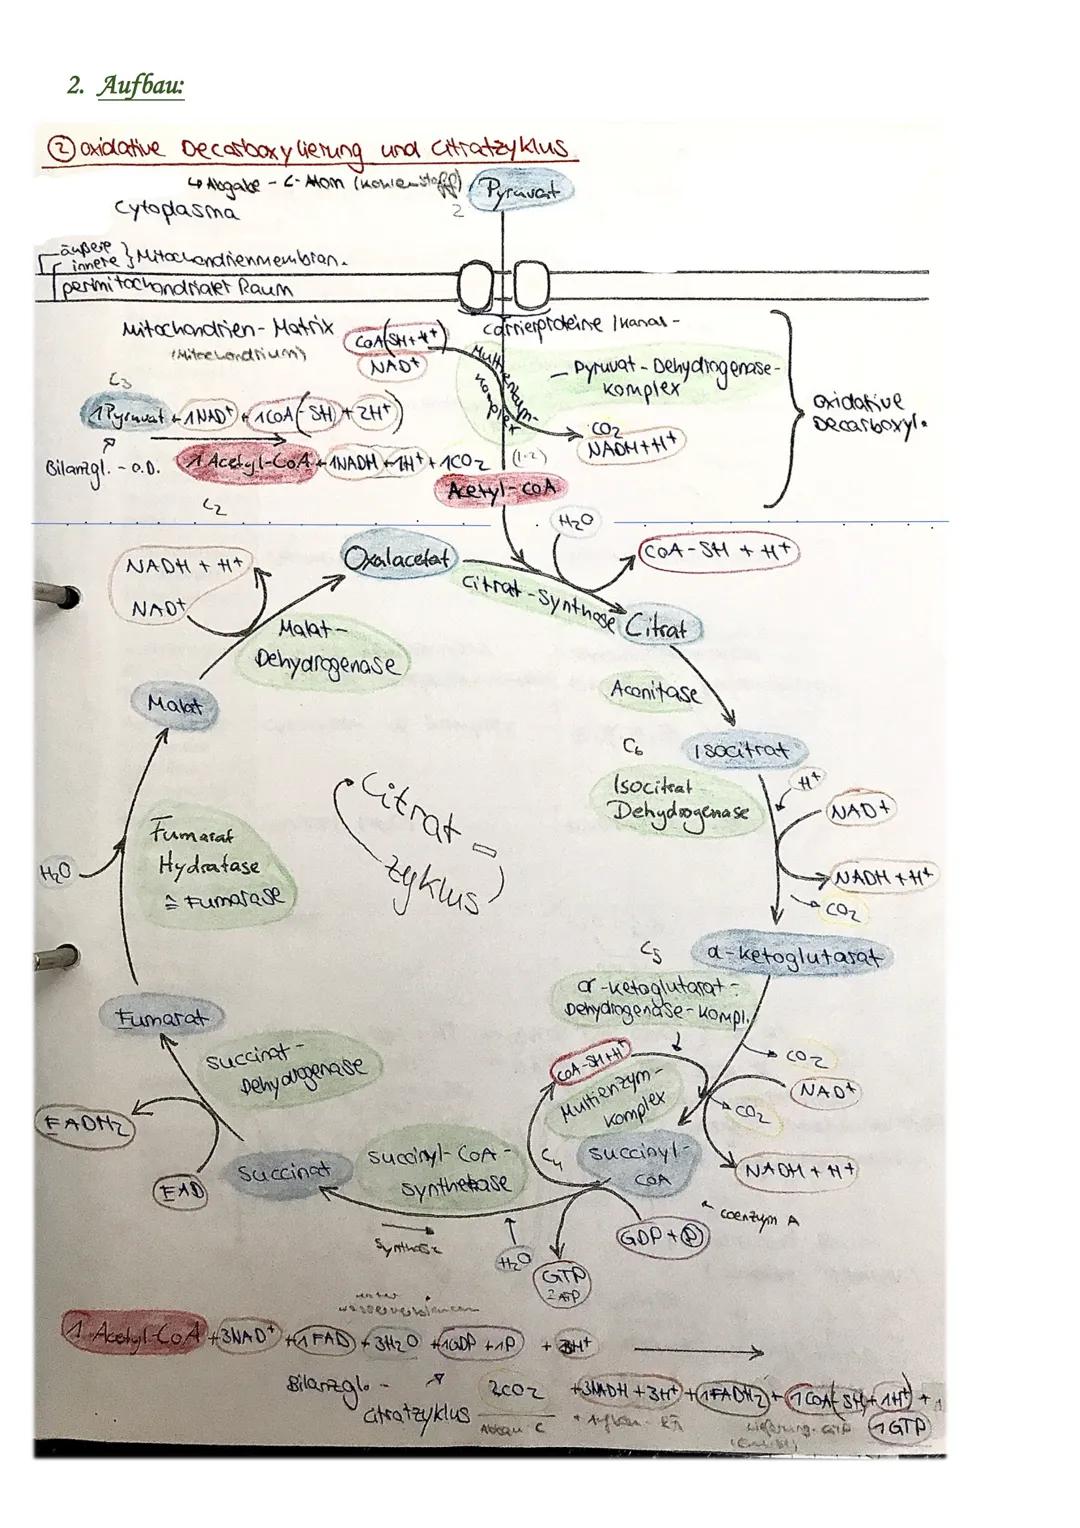 2. Aufbau:
② oxidative Decarboxylierung und Citratzyklus
↳ Abgabe - C-Atom (Kohlenstoff)
Pyruvat
2
Cytoplasma
äußere
innere } Mitochondrienmembran.
permitochondrialer Raum
Mitochondrien-Matrix
(Mitochondrium)
CoA(SH+H+)
NAD+
Carrierproteine / Kanal-
Multienzym-
komplex
- Pyruvat-Dehydrogenase-
komplex
oxidative
Decarboxyl.
CO2
NADH+H+
C3
1 Pyruvat + 1NAD+ + 1CoA(-SH) + 2H+)
Bilanzgl. - o.D.
1 Acetyl-CoA + 1NADH + 1H+ + 1CO2
(1-2)
C2
Acetyl-CoA
H2O
CoA-SH + H+
NADH + H+
NAD+
Oxalacetat
Citrat-Synthase
Citrat
Malat-
Dehydrogenase
Malat
Aconitase
C6
Isocitrat
Isocitrat
Dehydrogenase
H+
NAD+
NADH + H+
CO2
Citrat-
zyklus
Fumarat
Hydratase
≙ Fumarase
H2O
C5
α-ketoglutarat
α-ketoglutarat-
Dehydrogenase-Kompl.
Fumarat
Succinat-
Dehydrogenase
CoA-SH+H+
Multienzym-
komplex
CO2
NAD+
CO2
NADH + H+
FADH2
FAD
Succinat
Succinyl-CoA-
synthetase
C4
Succinyl-
CoA
Coenzym A
GDP + P
Synthese
H2O
GTP
2 ATP
unter
1 Acetyl-CoA + 3NAD+ + 1 FAD + 3H2O + 1GDP + 1P + 3H+
Bilanzgl. -
Citratzyklus
2CO2 + 3NADH + 3H+ + 1FADH2 + 1CoA(-SH + 1H+) +
1GTP
Abbau C